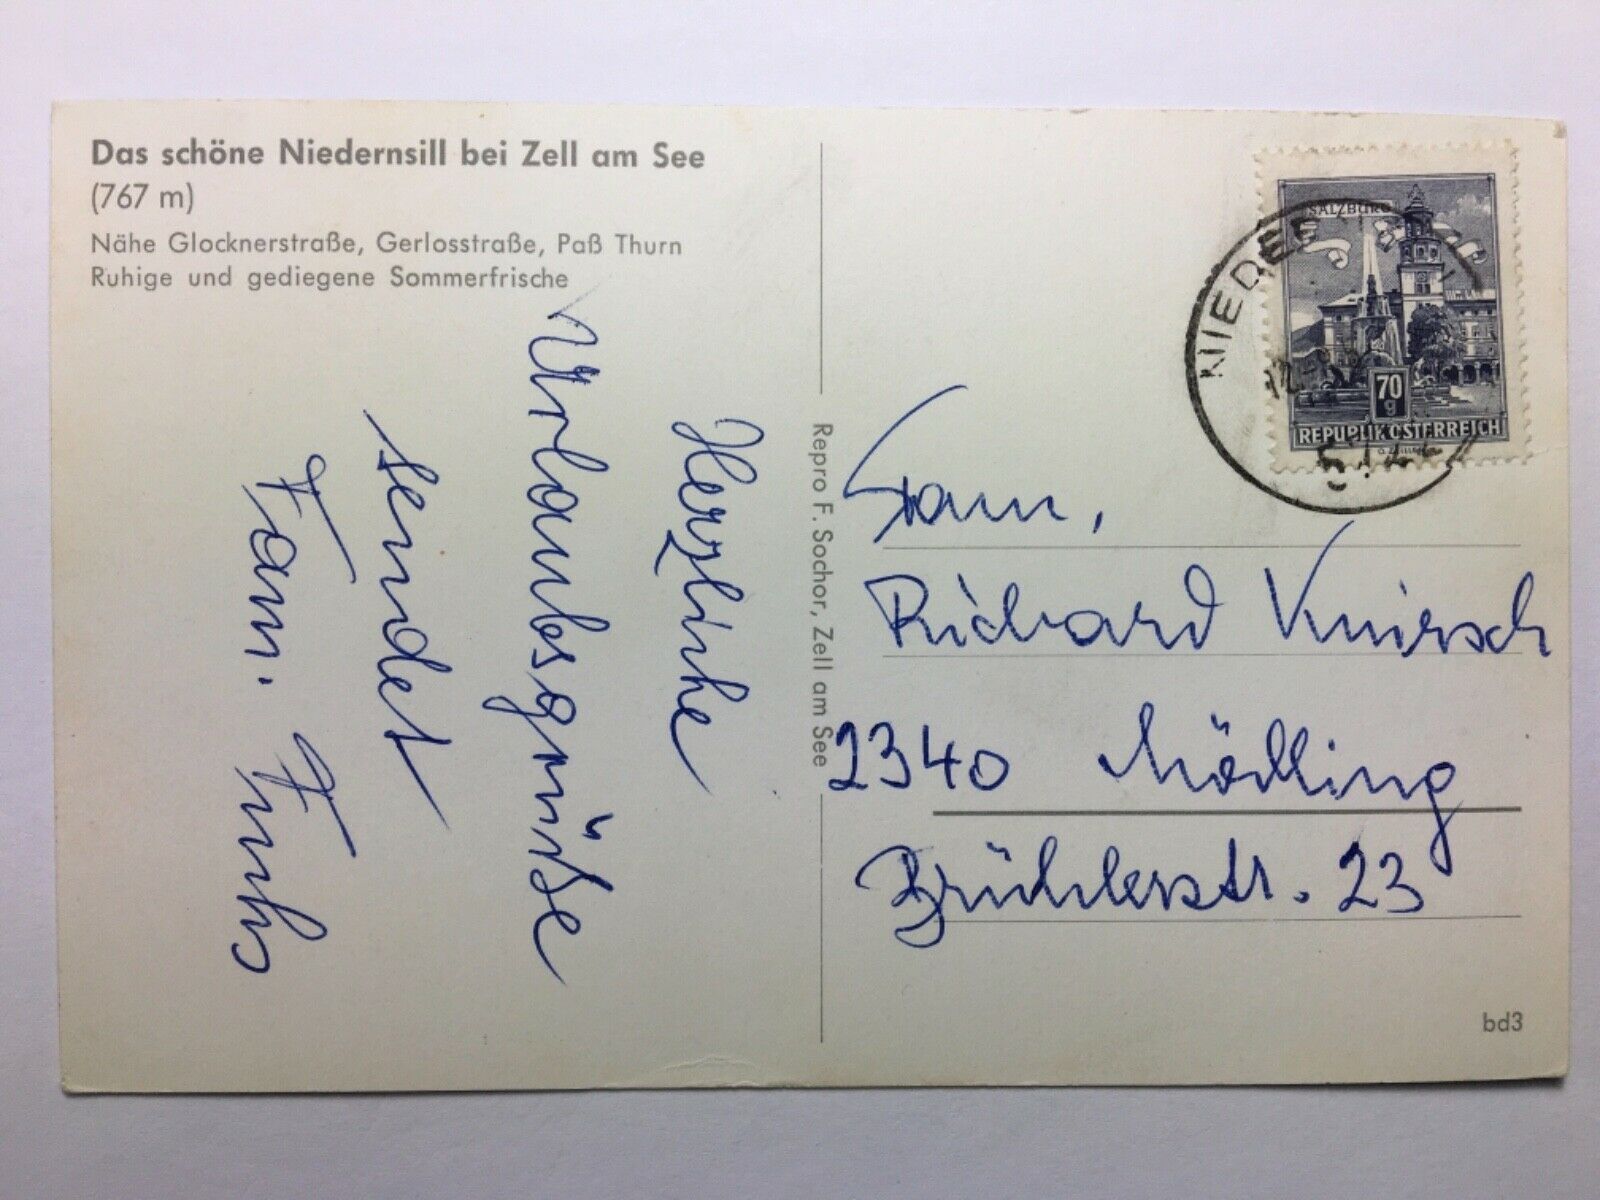 Das schöne Niedernsill bei Zell am See
(767 m)
Nähe Glocknerstraße, Gerlosstraße, Paß Thurn
Ruhige und gediegene Sommerfrische
Herzliche
Urlaubsgrüße
sendet
Fam. Fuchs
Repro F. Sochor, Zell am See
SALZBURG
70
g
REPUBLIK ÖSTERREICH
Fam.
Richard Knirsch
2340 Mödling
Brühlerstr. 23
bd3